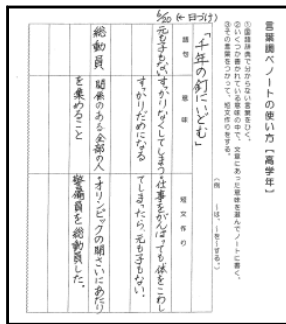 言葉調べノートの使い方【高学年】
①国語辞典で分からない言葉をひく。
②いくつか書かれている意味の中で、文章にあった意味を選んでノートに書く。
③その言葉をつかって、短文作りをする。
(例 ーは、ーを―する。)
6/20(←日づけ)
「千年の釘にいどむ」
語句 意味 短文作り
元も子もない
すっかりなくしてしまう・
すっかりだめになる
仕事をがんばっても体をこわし
てしまったら、元も子もない。
総動員
関係のある全部の人
を集めること
オリンピックの開さいにあたり
警備員を総動員した。